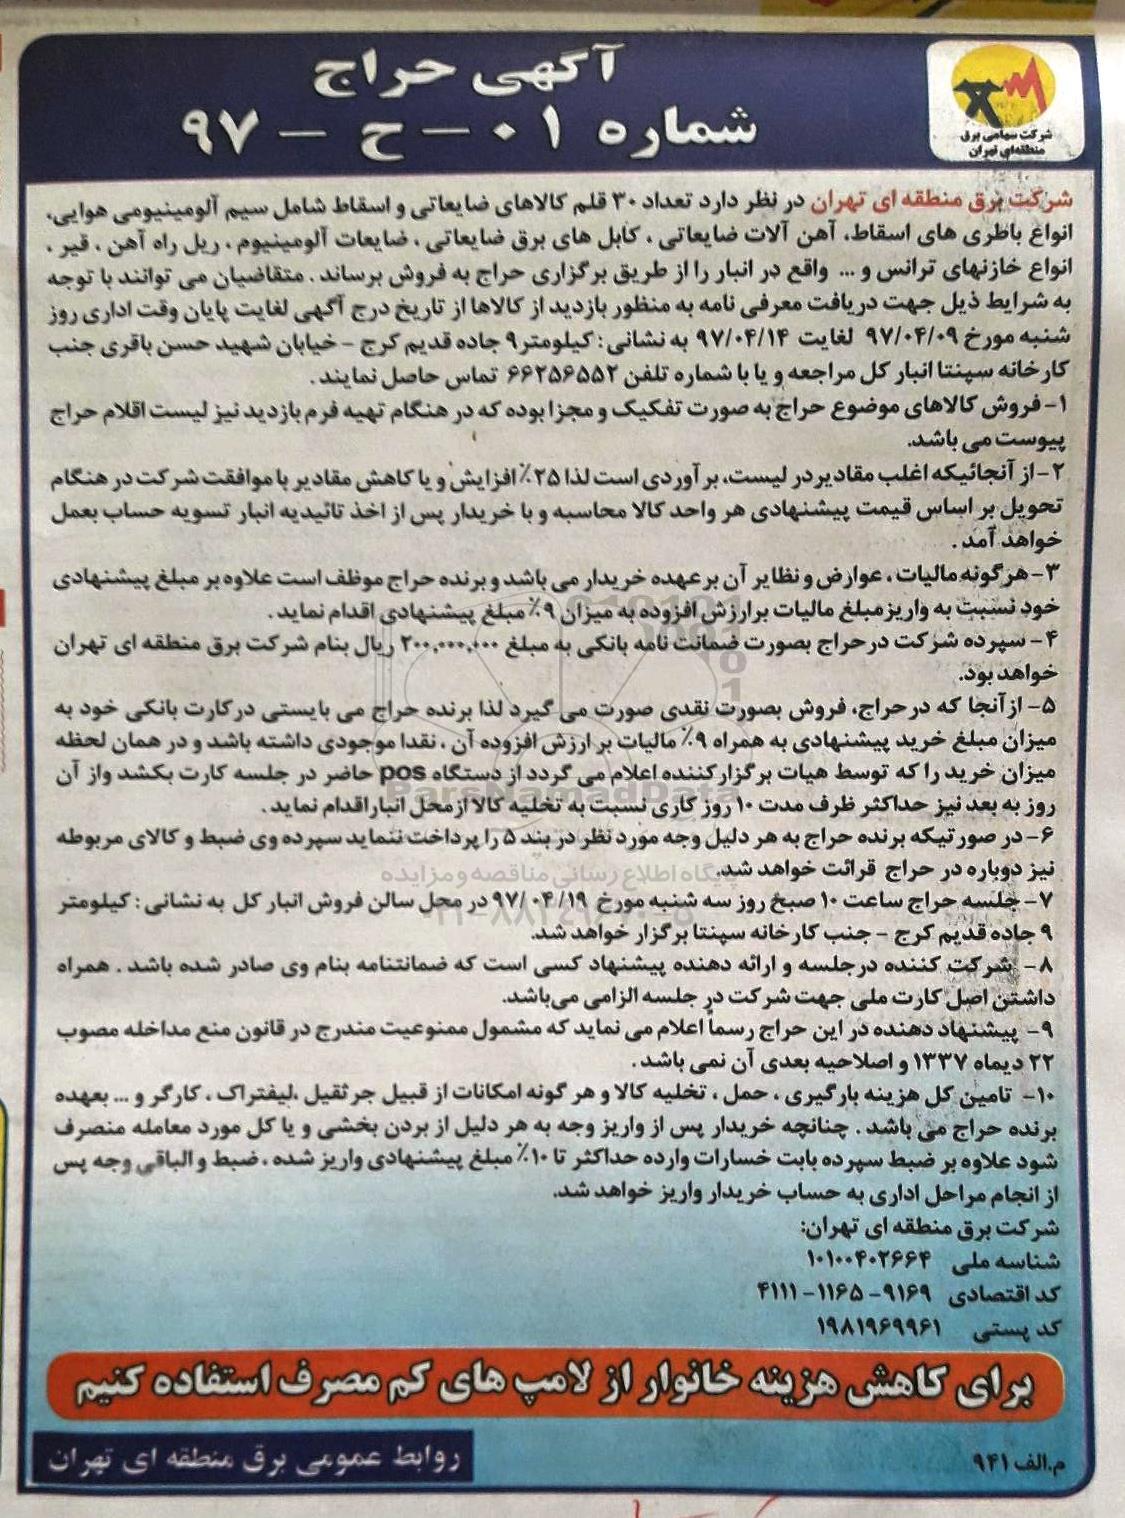 آگهی حراج
شماره ۰۱ – ح – ۹۷
شرکت سهامی برق
منطقه‌ای تهران
شرکت برق منطقه ای تهران در نظر دارد تعداد ۳۰ قلم کالاهای ضایعاتی و اسقاط شامل سیم آلومینیومی هوایی،
انواع باطری های اسقاط، آهن آلات ضایعاتی ، کابل های برق ضایعاتی ، ضایعات آلومینیوم ، ریل راه آهن ، قیر ،
انواع خازنهای ترانس و ... واقع در انبار را از طریق برگزاری حراج به فروش برساند . متقاضیان می توانند با توجه
به شرایط ذیل جهت دریافت معرفی نامه به منظور بازدید از کالاها از تاریخ درج آگهی لغایت پایان وقت اداری روز
شنبه مورخ ۹۷/۰۴/۰۹ لغایت ۹۷/۰۴/۱۴ به نشانی : کیلومتر۹ جاده قدیم کرج – خیابان شهید حسن باقری جنب
کارخانه سپنتا انبار کل مراجعه و یا با شماره تلفن ۶۶۲۵۶۵۵۲ تماس حاصل نمایند .
۱-فروش کالاهای موضوع حراج به صورت تفکیک و مجزا بوده که در هنگام تهیه فرم بازدید نیز لیست اقلام حراج
پیوست می باشد.
۲-از آنجائیکه اغلب مقادیر در لیست، بر آوردی است لذا ۲۵٪ افزایش و یا کاهش مقادیر با موافقت شرکت در هنگام
تحویل بر اساس قیمت پیشنهادی هر واحد کالا محاسبه و با خریدار پس از اخذ تائیدیه انبار تسویه حساب بعمل
خواهد آمد .
۳-هرگونه مالیات ، عوارض و نظایر آن بر عهده خریدار می باشد و برنده حراج موظف است علاوه بر مبلغ پیشنهادی
خود نسبت به واریز مبلغ مالیات بر ارزش افزوده به میزان ۹٪ مبلغ پیشنهادی اقدام نماید .
۴- سپرده شرکت در حراج بصورت ضمانت نامه بانکی به مبلغ ۲۰۰,۰۰۰,۰۰۰ ریال بنام شرکت برق منطقه ای تهران
خواهد بود.
۵- از آنجا که در حراج، فروش بصورت نقدی صورت می گیرد لذا برنده حراج می بایستی در کارت بانکی خود به
میزان مبلغ خرید پیشنهادی به همراه ۹٪ مالیات بر ارزش افزوده آن ، نقدا موجودی داشته باشد و در همان لحظه
میزان خرید را که توسط هیات برگزار کننده اعلام می گردد از دستگاه pos حاضر در جلسه کارت بکشد واز آن
روز به بعد نیز حداکثر ظرف مدت ۱۰ روز کاری نسبت به تخلیه کالا از محل انبار اقدام نماید .
۶- در صورتیکه برنده حراج به هر دلیل وجه مورد نظر در بند ۵ را پرداخت ننماید سپرده وی ضبط و کالای مربوطه
نیز دوباره در حراج قرائت خواهد شد.
۷- جلسه حراج ساعت ۱۰ صبح روز سه شنبه مورخ ۹۷/۰۴/۱۹ در محل سالن فروش انبار کل به نشانی : کیلومتر
۹ جاده قدیم کرج – جنب کارخانه سپنتا برگزار خواهد شد.
۸- شرکت کننده در جلسه و ارائه دهنده پیشنهاد کسی است که ضمانتنامه بنام وی صادر شده باشد . همراه
داشتن اصل کارت ملی جهت شرکت در جلسه الزامی می‌باشد.
۹- پیشنهاد دهنده در این حراج رسماً اعلام می نماید که مشمول ممنوعیت مندرج در قانون منع مداخله مصوب
۲۲ دیماه ۱۳۳۷ و اصلاحیه بعدی آن نمی باشد .
۱۰- تامین کل هزینه بارگیری ، حمل ، تخلیه کالا و هر گونه امکانات از قبیل جرثقیل ،لیفتراک ، کارگر و ... بعهده
برنده حراج می باشد . چنانچه خریدار پس از واریز وجه به هر دلیل از بردن بخشی و یا کل مورد معامله منصرف
شود علاوه بر ضبط سپرده بابت خسارات وارده حداکثر تا ۱۰٪ مبلغ پیشنهادی واریز شده ، ضبط و الباقی وجه پس
از انجام مراحل اداری به حساب خریدار واریز خواهد شد.
شرکت برق منطقه ای تهران:
شناسه ملی ۱۰۱۰۰۴۰۲۶۶۴
کد اقتصادی ۹۱۶۹ – ۱۱۶۵ – ۴۱۱۱
کد پستی ۱۹۸۱۹۶۹۹۶۱
برای کاهش هزینه خانوار از لامپ های کم مصرف استفاده کنیم
م.الف ۹۴۱
روابط عمومی برق منطقه ای تهران
ParsNamadData
پایگاه اطلاع رسانی مناقصه و مزایده